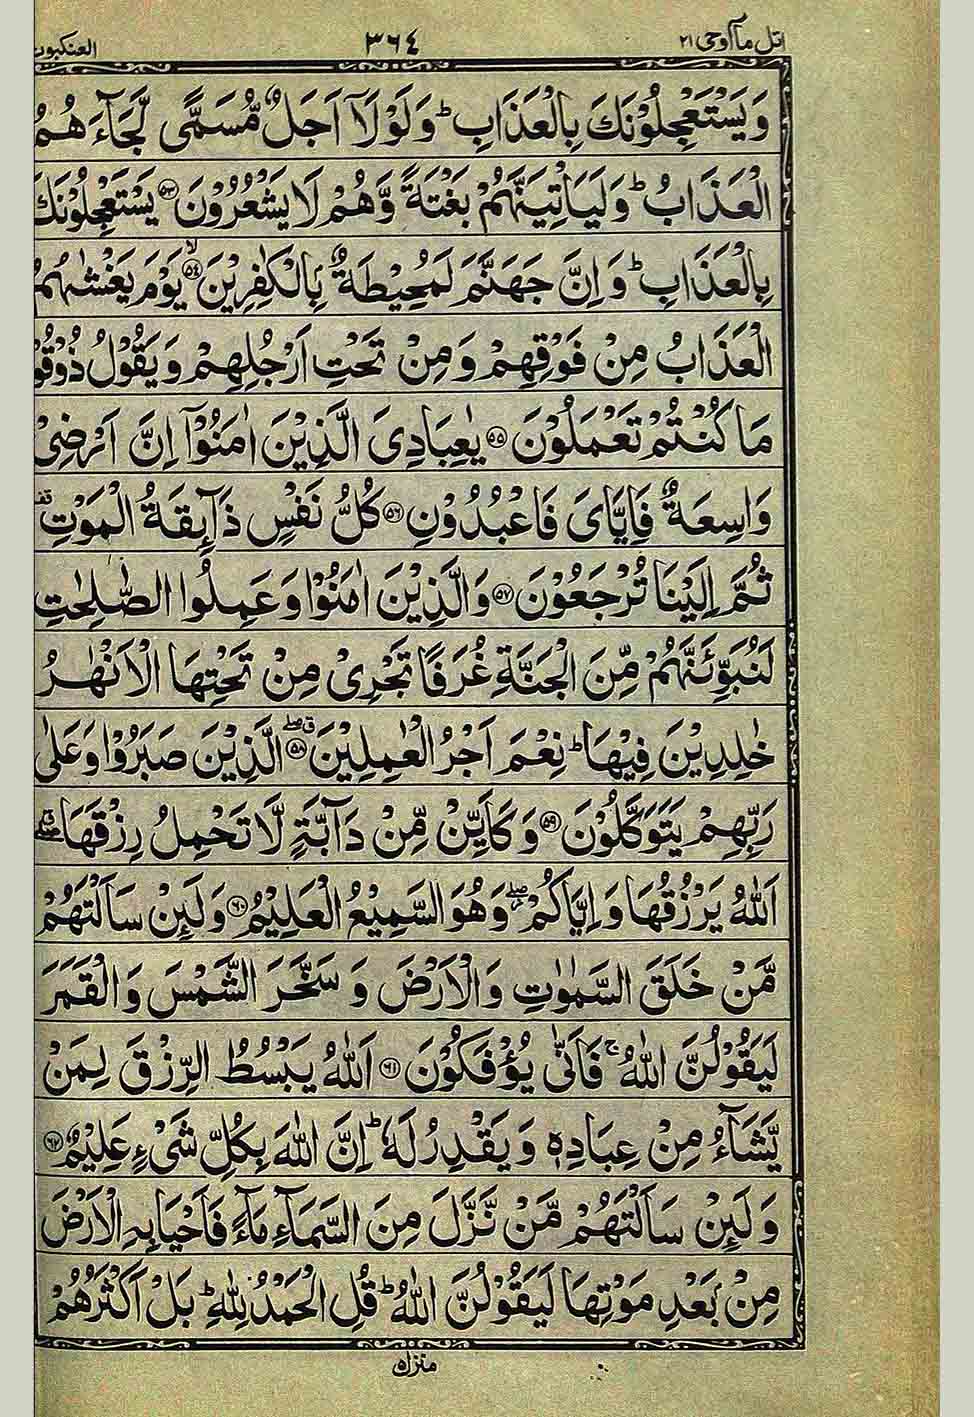 اتل ما اوحی ۲۱ ۳۶۴ العنکبوت
وَيَسْتَعْجِلُوْنَكَ بِالْعَذَابِ ؕ وَلَوْلَاۤ اَجَلٌ مُّسَمًّى لَّجَآءَ هُمُ
الْعَذَابُ ؕ وَلَيَاْتِيَنَّهُمْ بَغْتَةً وَّهُمْ لَا يَشْعُرُوْنَ ﴿۵۳﴾ يَسْتَعْجِلُوْنَكَ
بِالْعَذَابِ ؕ وَاِنَّ جَهَنَّمَ لَمُحِيْطَةٌۢ بِالْكٰفِرِيْنَ ﴿۵۴﴾ۙ يَوْمَ يَغْشٰىهُمُ
الْعَذَابُ مِنْ فَوْقِهِمْ وَمِنْ تَحْتِ اَرْجُلِهِمْ وَيَقُوْلُ ذُوْقُوْ
مَا كُنْتُمْ تَعْمَلُوْنَ ﴿۵۵﴾ يٰعِبَادِىَ الَّذِيْنَ اٰمَنُوْۤا اِنَّ اَرْضِىْ
وَاسِعَةٌ فَاِيَّاىَ فَاعْبُدُوْنِ ﴿۵۶﴾ كُلُّ نَفْسٍ ذَآئِقَةُ الْمَوْتِ
ثُمَّ اِلَيْنَا تُرْجَعُوْنَ ﴿۵۷﴾ وَالَّذِيْنَ اٰمَنُوْا وَعَمِلُوا الصّٰلِحٰتِ
لَنُبَوِّئَنَّهُمْ مِّنَ الْجَنَّةِ غُرَفًا تَجْرِىْ مِنْ تَحْتِهَا الْاَنْهٰرُ
خٰلِدِيْنَ فِيْهَا ؕ نِعْمَ اَجْرُ الْعٰمِلِيْنَ ﴿۵۸﴾ۖ الَّذِيْنَ صَبَرُوْا وَعَلٰى
رَبِّهِمْ يَتَوَكَّلُوْنَ ﴿۵۹﴾ وَكَاَيِّنْ مِّنْ دَآبَّةٍ لَّا تَحْمِلُ رِزْقَهَا ۖ
اَللّٰهُ يَرْزُقُهَا وَاِيَّاكُمْ ۖ وَهُوَ السَّمِيْعُ الْعَلِيْمُ ﴿۶۰﴾ وَلَئِنْ سَاَلْتَهُمْ
مَّنْ خَلَقَ السَّمٰوٰتِ وَالْاَرْضَ وَ سَخَّرَ الشَّمْسَ وَالْقَمَرَ
لَيَقُوْلُنَّ اللّٰهُ ۚ فَاَنّٰى يُؤْفَكُوْنَ ﴿۶۱﴾ اَللّٰهُ يَبْسُطُ الرِّزْقَ لِمَنْ
يَّشَآءُ مِنْ عِبَادِهٖ وَيَقْدِرُ لَهٗ ؕ اِنَّ اللّٰهَ بِكُلِّ شَىْءٍ عَلِيْمٌ ﴿۶۲﴾
وَلَئِنْ سَاَلْتَهُمْ مَّنْ نَّزَّلَ مِنَ السَّمَآءِ مَآءً فَاَحْيَا بِهِ الْاَرْضَ
مِنْۢ بَعْدِ مَوْتِهَا لَيَقُوْلُنَّ اللّٰهُ ؕ قُلِ الْحَمْدُ لِلّٰهِ ؕ بَلْ اَكْثَرُهُمْ
منزل ۵